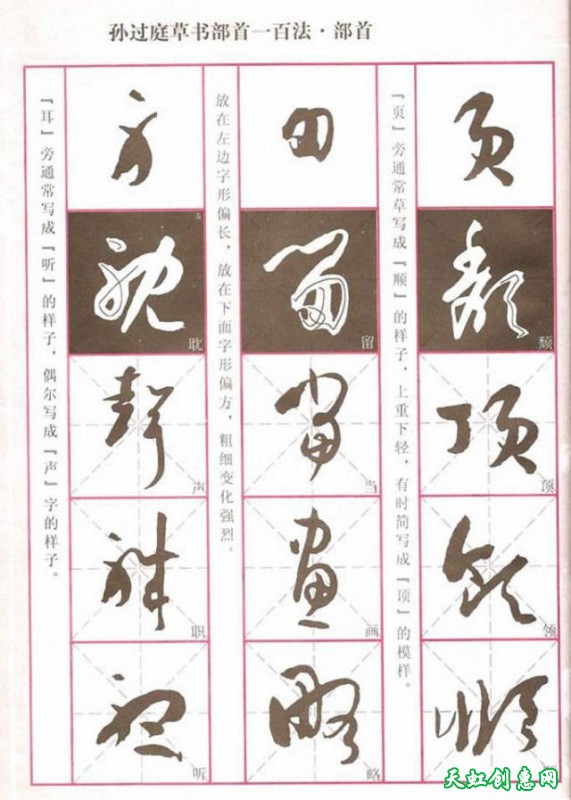 孙过庭草书部首一百法·部首
『页』旁通常草写成『顺』的样子，上重下轻，有时简写成『顶』的模样。
页
颓
顶
领
放在左边字形偏长，放在下面字形偏方，粗细变化强烈。
田
留
当
画
略
『耳』旁通常写成『听』的样子，偶尔写成『声』字的样子。
耽
声
职
听
天虹创意网